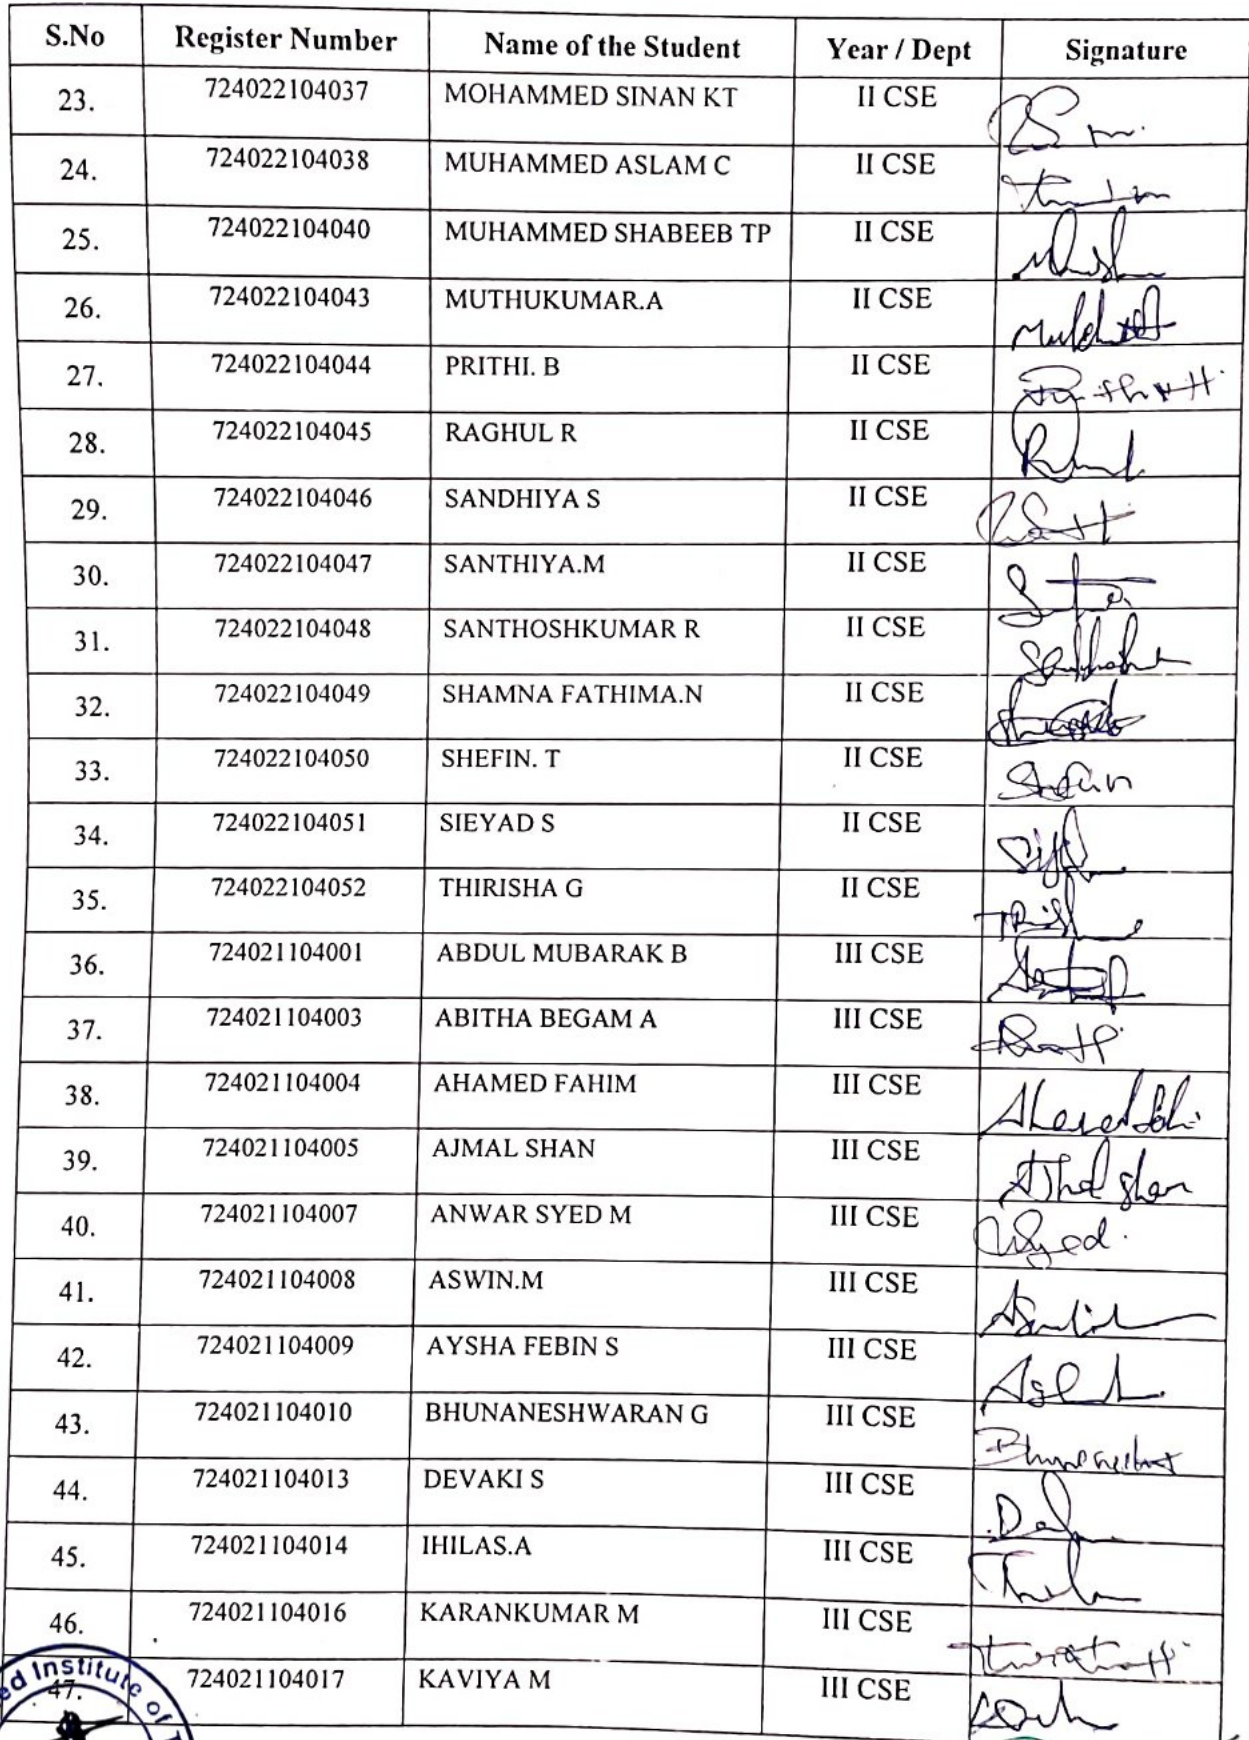 S.No Register Number Name of the Student Year / Dept Signature
23. 724022104037 MOHAMMED SINAN KT II CSE
24. 724022104038 MUHAMMED ASLAM C II CSE
25. 724022104040 MUHAMMED SHABEEB TP II CSE
26. 724022104043 MUTHUKUMAR.A II CSE
27. 724022104044 PRITHI. B II CSE
28. 724022104045 RAGHUL R II CSE
29. 724022104046 SANDHIYA S II CSE
30. 724022104047 SANTHIYA.M II CSE
31. 724022104048 SANTHOSHKUMAR R II CSE
32. 724022104049 SHAMNA FATHIMA.N II CSE
33. 724022104050 SHEFIN. T II CSE
34. 724022104051 SIEYAD S II CSE
35. 724022104052 THIRISHA G II CSE
36. 724021104001 ABDUL MUBARAK B III CSE
37. 724021104003 ABITHA BEGAM A III CSE
38. 724021104004 AHAMED FAHIM III CSE
39. 724021104005 AJMAL SHAN III CSE
40. 724021104007 ANWAR SYED M III CSE
41. 724021104008 ASWIN.M III CSE
42. 724021104009 AYSHA FEBIN S III CSE
43. 724021104010 BHUNANESHWARAN G III CSE
44. 724021104013 DEVAKI S III CSE
45. 724021104014 IHILAS.A III CSE
46. 724021104016 KARANKUMAR M III CSE
47. 724021104017 KAVIYA M III CSE
Institute of